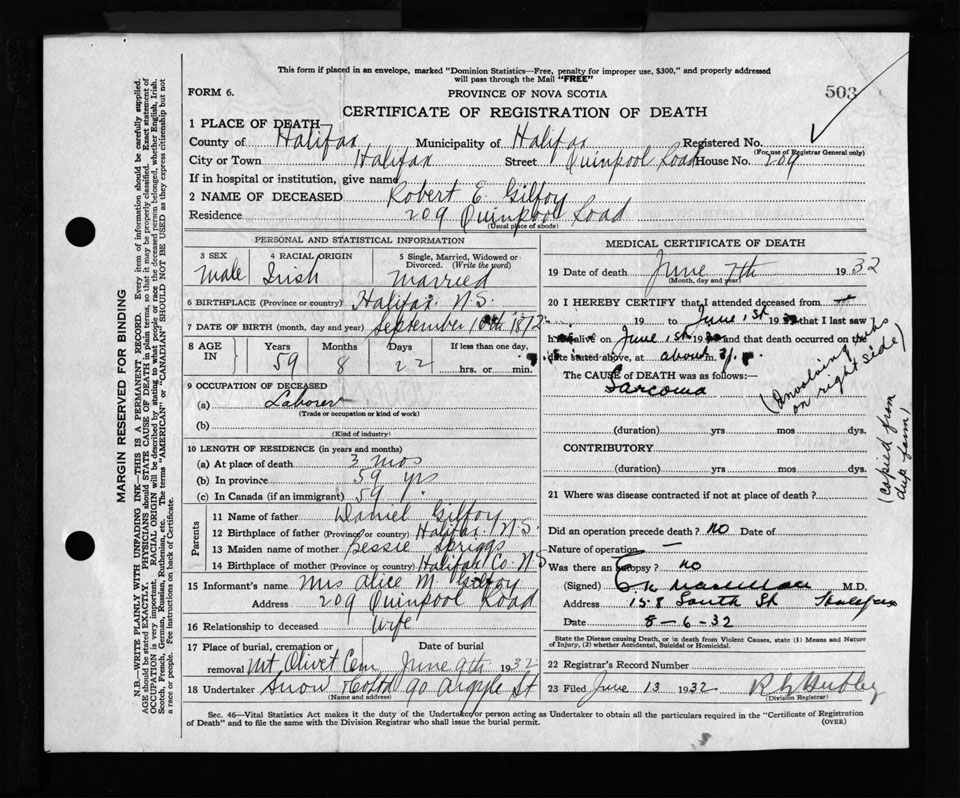 This form if placed in an envelope, marked "Dominion Statistics—Free, penalty for improper use, $300," and properly addressed
will pass through the Mail "FREE"
FORM 6.
PROVINCE OF NOVA SCOTIA
503
CERTIFICATE OF REGISTRATION OF DEATH
1 PLACE OF DEATH
County of Halifax Municipality of Halifax Registered No.
(For use of Registrar General only)
City or Town Halifax Street Quinpool Road House No. 209
If in hospital or institution, give name
2 NAME OF DECEASED Robert E. Gilfoy
Residence 209 Quinpool Road
(Usual place of abode)
PERSONAL AND STATISTICAL INFORMATION
3 SEX 4 RACIAL ORIGIN 5 Single, Married, Widowed or Divorced. (Write the word)
Male Irish Married
6 BIRTHPLACE (Province or country) Halifax N.S.
7 DATE OF BIRTH (month, day and year) September 1872
8 AGE IN Years Months Days If less than one day,
59 8 22 hrs. or min.
9 OCCUPATION OF DECEASED
(a) Laborer
(Trade or occupation or kind of work)
(b)
(Kind of industry)
10 LENGTH OF RESIDENCE (in years and months)
(a) At place of death 3 mos
(b) In province 59 yrs
(c) In Canada (if an immigrant) 59
Parents
11 Name of father Daniel Gilfoy
12 Birthplace of father (Province or country) Halifax N.S.
13 Maiden name of mother Bessie Spriggs
14 Birthplace of mother (Province or country) Halifax Co. N S
15 Informant's name Mrs Alice M Gilfoy
Address 209 Quinpool Road
16 Relationship to deceased Wife
17 Place of burial, cremation or removal Date of burial
Mt Olivet Cem June 9th 1932
18 Undertaker Snow & Co Ltd 90 Argyle St
(Name and address)
MEDICAL CERTIFICATE OF DEATH
19 Date of death June 7th 1932
(Month, day and year)
20 I HEREBY CERTIFY that I attended deceased from
19 to June 1st 19 that I last saw
h alive on June 1st 19 and that death occurred on the
date stated above, at about m.
The CAUSE OF DEATH was as follows:—
Sarcoma
(Involving
on right side)
(copied from
dup form)
(duration) yrs mos days
CONTRIBUTORY
(duration) yrs mos days
21 Where was disease contracted if not at place of death?
Did an operation precede death? no Date of
Nature of operation —
Was there an autopsy? no
(Signed) M.D.
Address 158 South St Halifax
Date 8-6-32
State the Disease causing Death, or in death from Violent Causes, state (1) Means and Nature
of Injury, and (2) whether Accidental, Suicidal or Homicidal.
22 Registrar's Record Number
23 Filed June 13 1932
(Division Registrar)
Sec. 46—Vital Statistics Act makes it the duty of the Undertaker or person acting as Undertaker to obtain all the particulars required in the "Certificate of Registration
of Death" and to file the same with the Division Registrar who shall issue the burial permit.
(OVER)
MARGIN RESERVED FOR BINDING
N.B.—WRITE PLAINLY WITH UNFADING INK—THIS IS A PERMANENT RECORD. Every item of information should be carefully supplied.
AGE should be stated EXACTLY. PHYSICIANS should STATE CAUSE OF DEATH in plain terms, so that it may be properly classified. Exact statement of
OCCUPATION is very important. RACIAL ORIGIN will be described by stating to what people or race the deceased person belonged, whether English, Irish,
Scotch, French, German, Russian, Ruthenian, etc. The terms "AMERICAN" or "CANADIAN" SHOULD NOT BE USED as they express citizenship but not
a race or people. Fee instructions on back of Certificate.